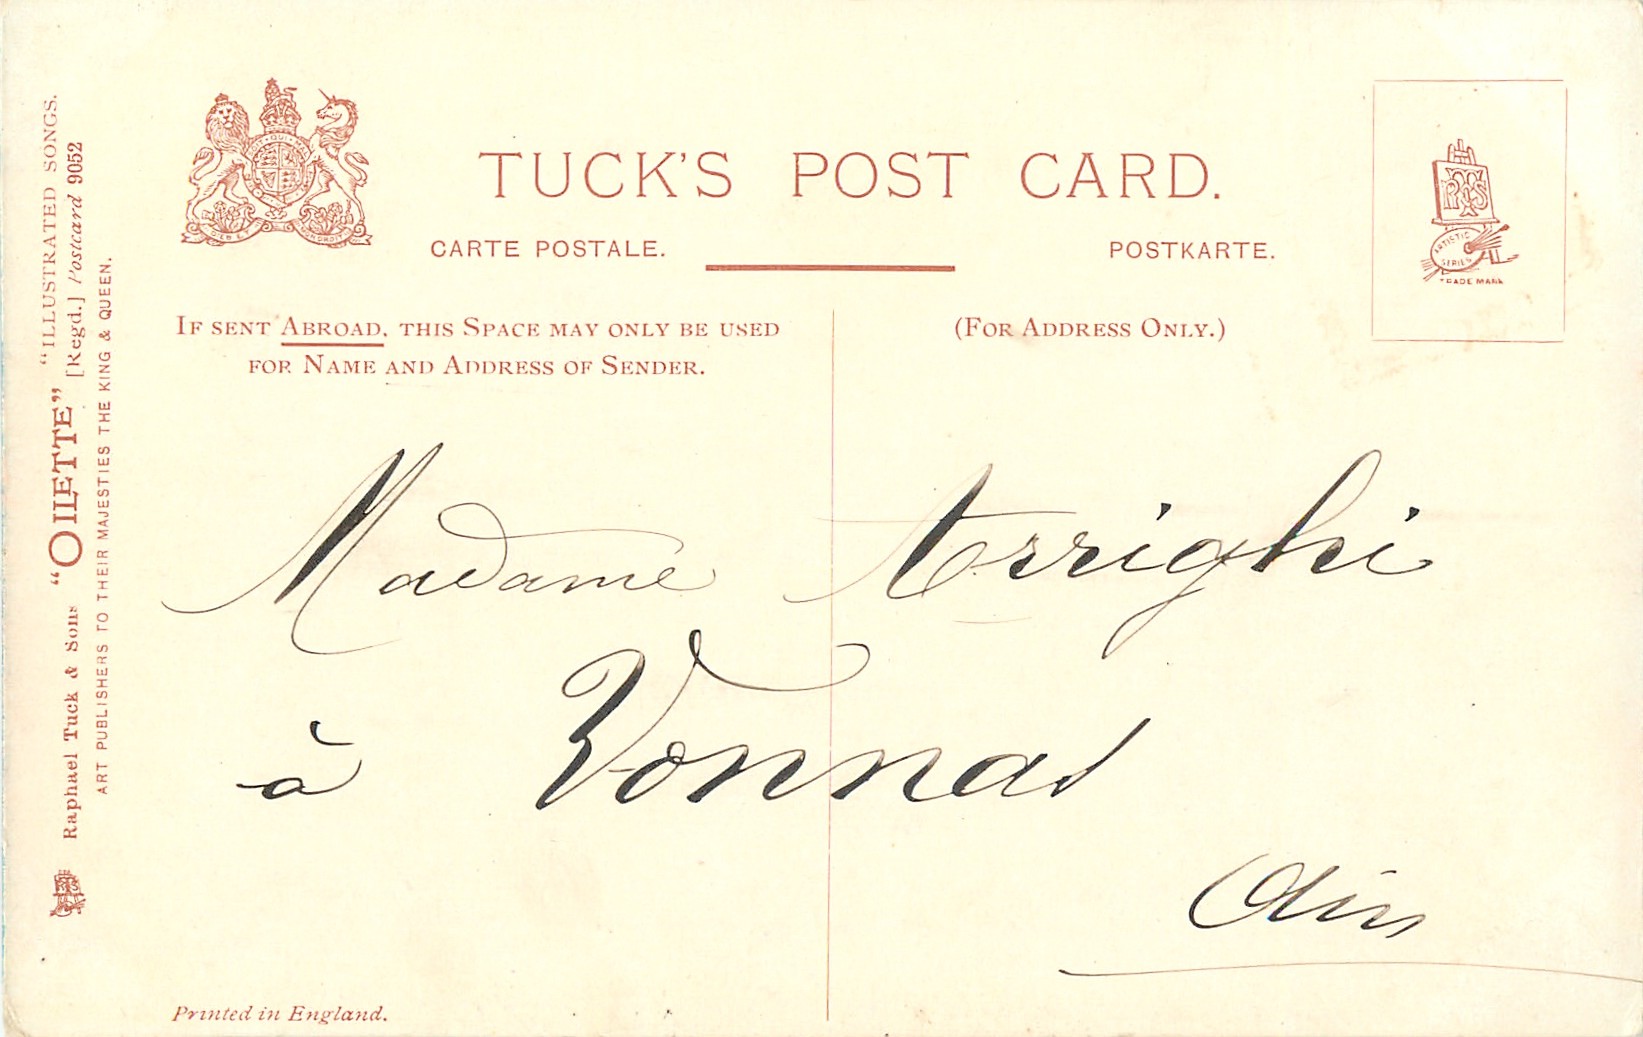 TUCK'S POST CARD.
CARTE POSTALE.
POSTKARTE.
IF SENT ABROAD, THIS SPACE MAY ONLY BE USED
FOR NAME AND ADDRESS OF SENDER.
(FOR ADDRESS ONLY.)
RTS
ARTISTIC
SERIES
TRADE MARK
Madame Arrighi
à Vonnas
Ain
Raphael Tuck & Sons "OILETTE" "ILLUSTRATED SONGS.
[Regd.] Postcard 9052
ART PUBLISHERS TO THEIR MAJESTIES THE KING & QUEEN.
RTS
Printed in England.